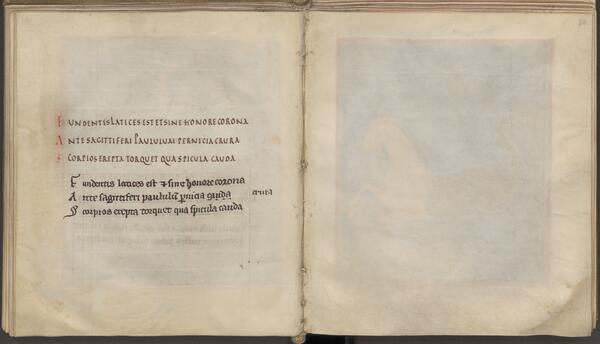 FUNDENTIS LATICES EST ET SINE HONORE CORONA
ANTE SAGITTIFERI PAULULUM PERNICIA CRURA
SCORPIOS EREPTA TORQUET QUA SPICULA CAUDA
Fundentis latices est & sine honore corona
Ante sagittiferi paululū pnicia gauda crura
Scorpios erepta torquet qua spicula cauda